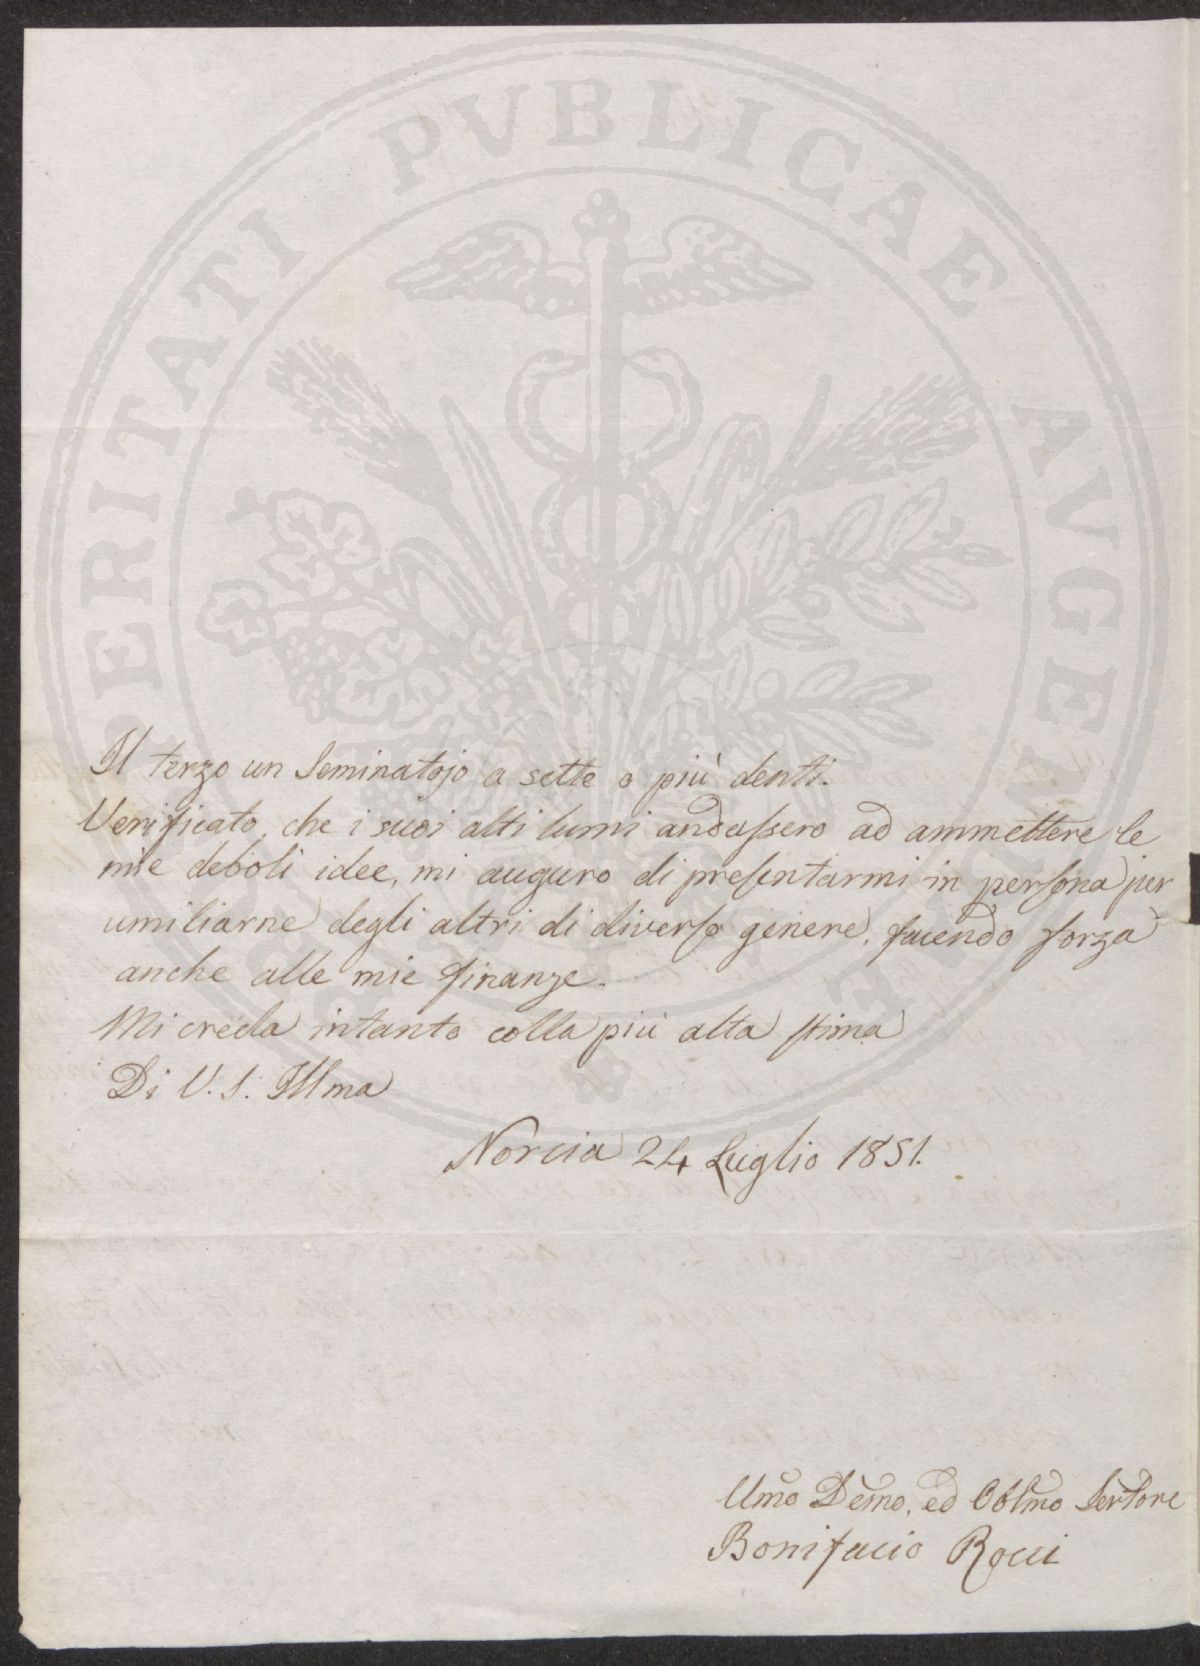 PROSPERITATI PVBLICAE AVGENDAE
Il terzo un Seminatojo a sette o più denti.
Verificato, che i suoi alti lumi andassero ad ammettere le
mie deboli idee, mi auguro di presentarmi in persona per
umiliarne degli altri di diverso genere, facendo forza
anche alle mie finanze.
Mi creda intanto colla più alta stima
Di V. S. Illma
Norcia 24 Luglio 1851.
Umo Demo, ed Obblmo Servtore
Bonifacio Rocci